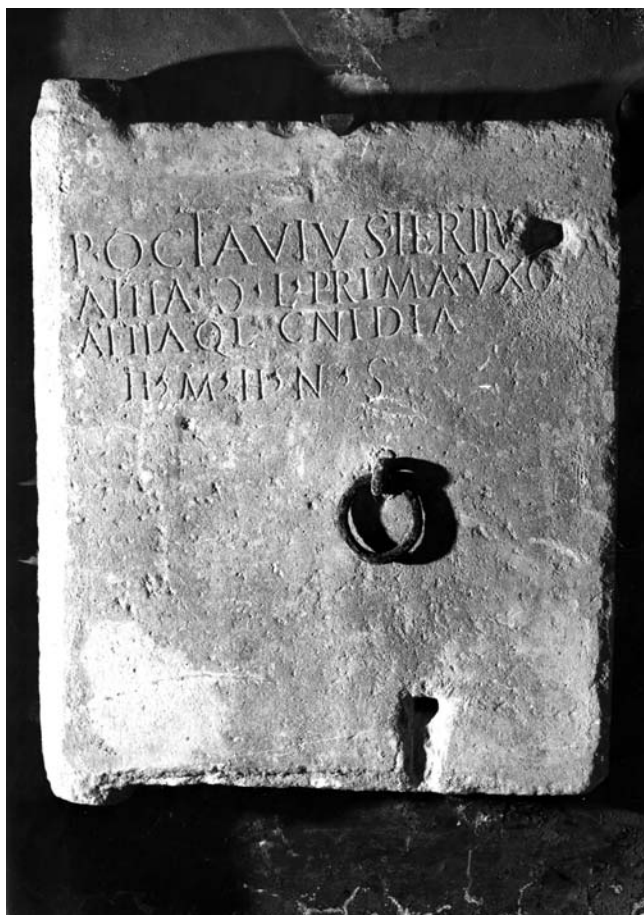 P·OCTAVIVS·TERTIV
ATTIA·Ɔ·L·PRIMA·VXO
ATTIA Q L CNIDIA
H·M·H·N·S